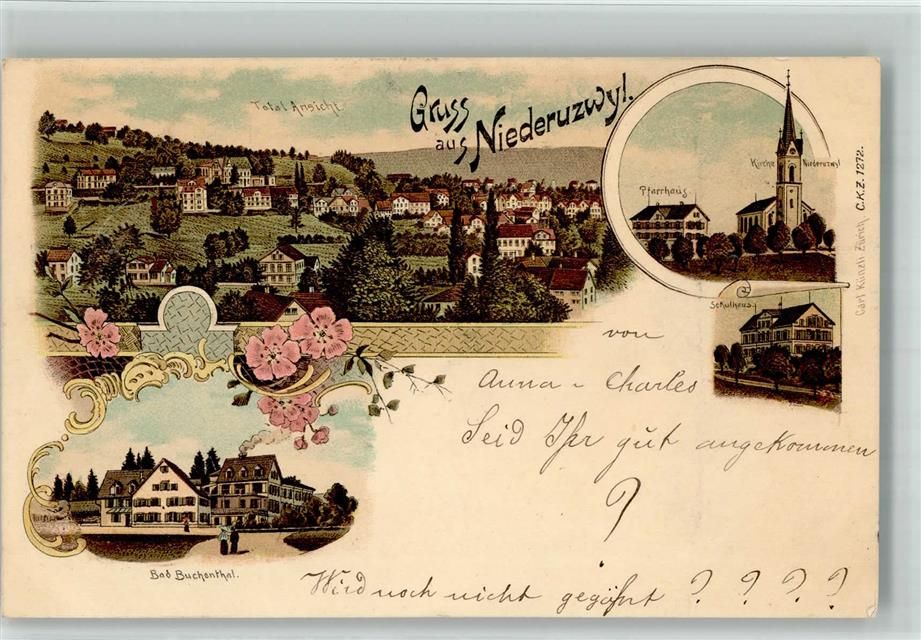 Total Ansicht.
Gruss
aus Niederuzwyl.
Kirche Niederuzwyl
Pfarrhaus
Schulhaus
Carl Künzli Zürich C.K.Z. 1272.
von
Anna - Charles
Seid Ihr gut angekommen
?
Wird noch nicht ? ? ? ?
Bad Buchenthal.